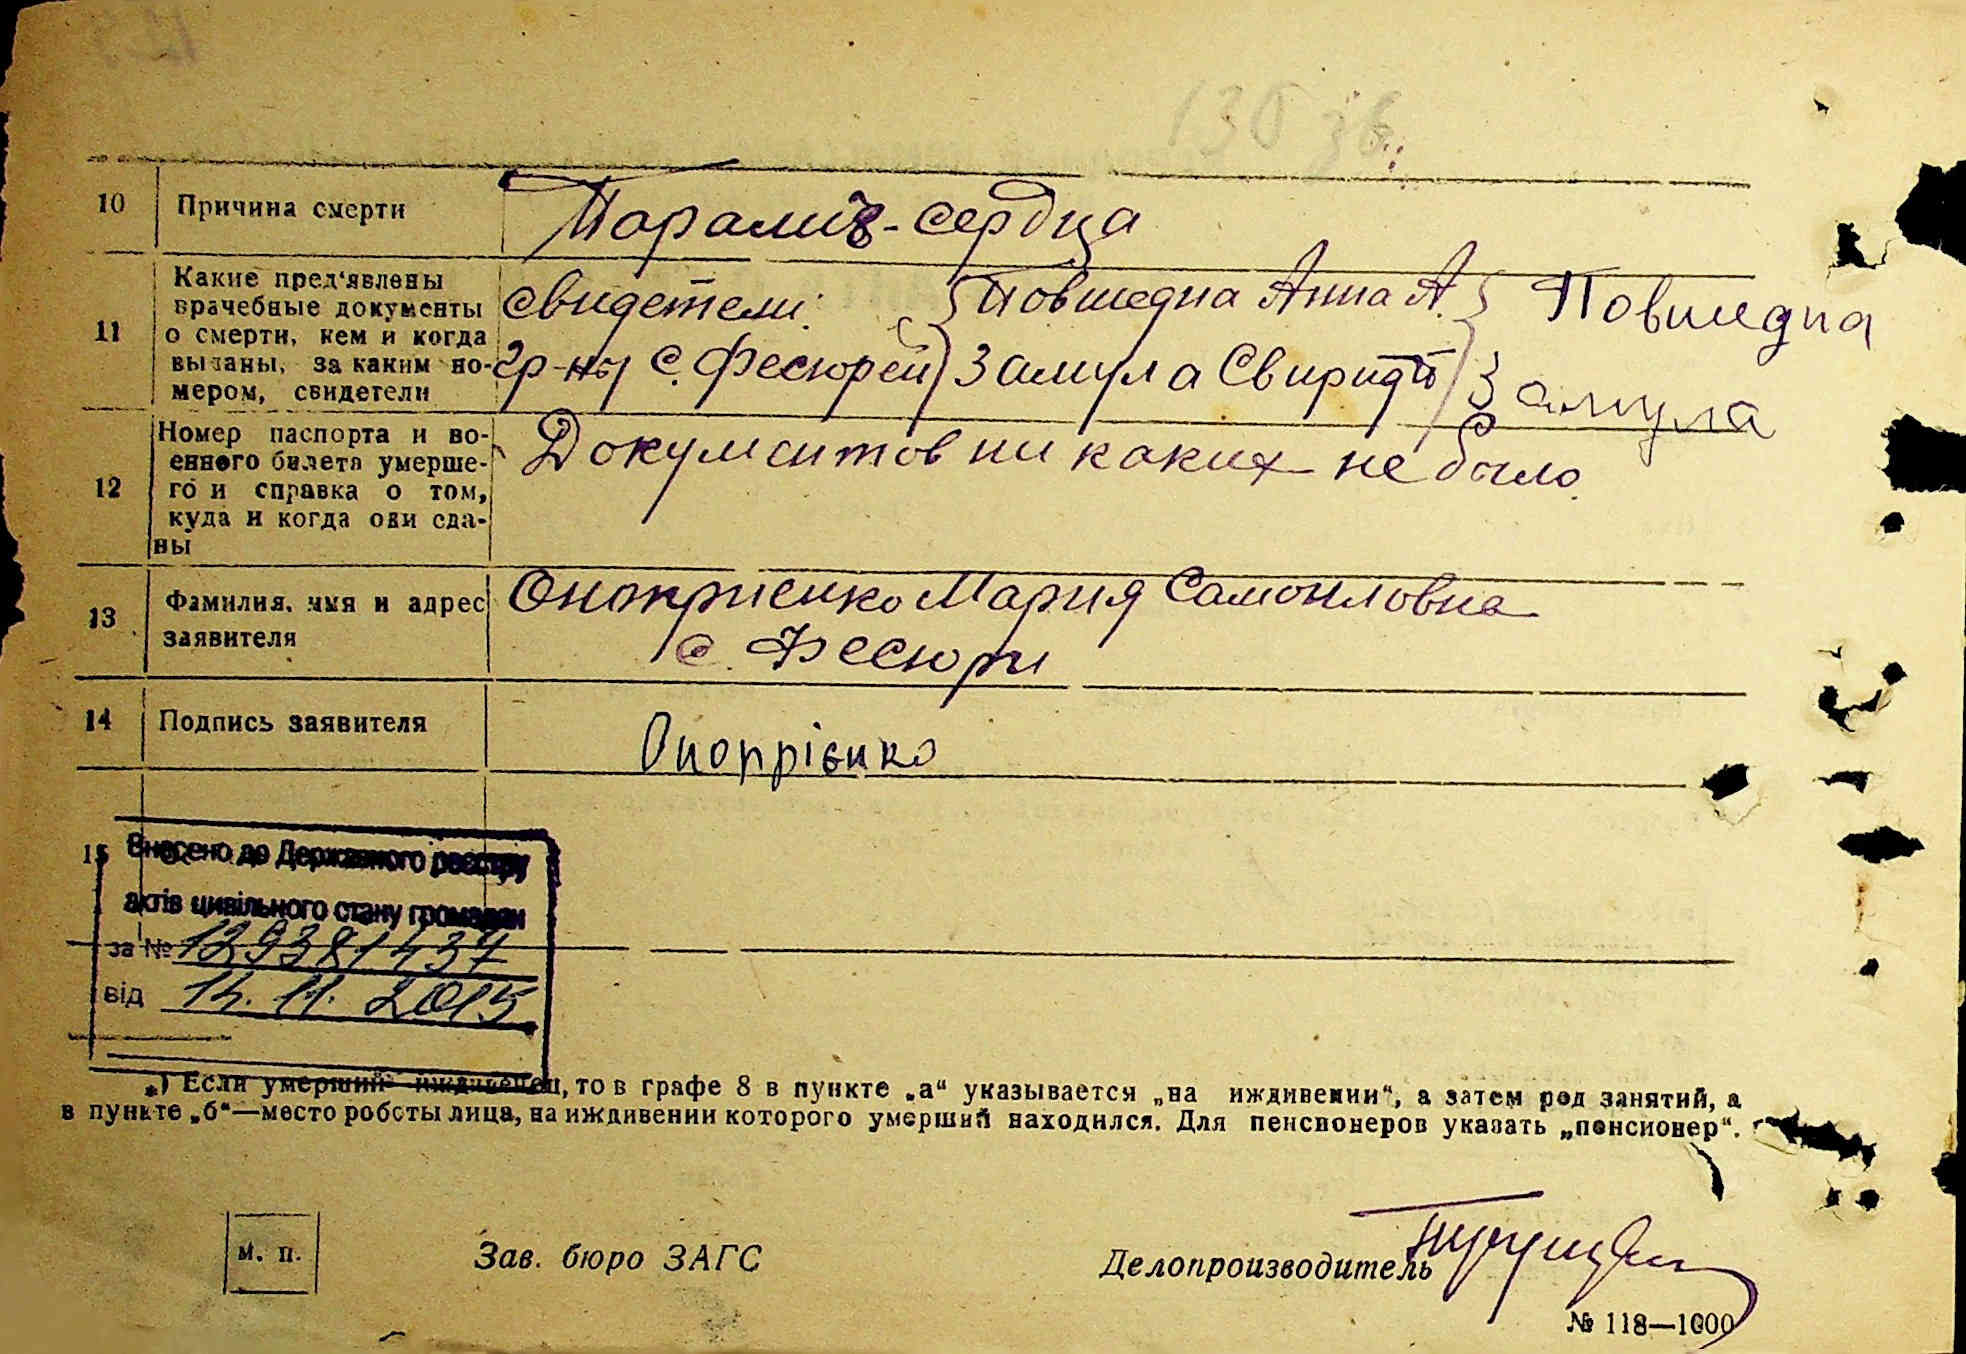 130 зв.
10 Причина смерти Паралич-сердца
11 Какие пред'явлены врачебные документы о смерти, кем и когда выданы, за каким но-
мером, свидетели
свидетели: Повшедна Анна А. Повшедна
гр-ны с. Фесюрей Замула Свирид Замула
12 Номер паспорта и во-
енного билета умерше-
го и справка о том,
куда и когда они сда-
ны
Документов ни каких не было.
13 Фамилия, имя и адрес
заявителя
Оноприенко Мария Самойловна
с. Фесюри
14 Подпись заявителя Онопрієнко
15
Внесено до Державного реєстру
актів цивільного стану громадян
за № 129381437
від 14.11.2015
*) Если умерший иждивенец, то в графе 8 в пункте „а“ указывается „на иждивении“, а затем род занятий, а
в пункте „б“—место роботы лица, на иждивении которого умерший находился. Для пенсионеров указать „пенсионер“.
м. п. Зав. бюро ЗАГС Делопроизводитель
№ 118—1000